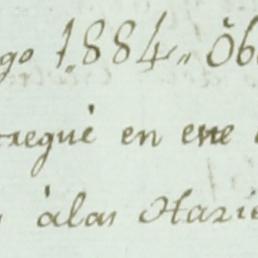 go 1.884„ Ob
tregué en ene
àlas Hazie